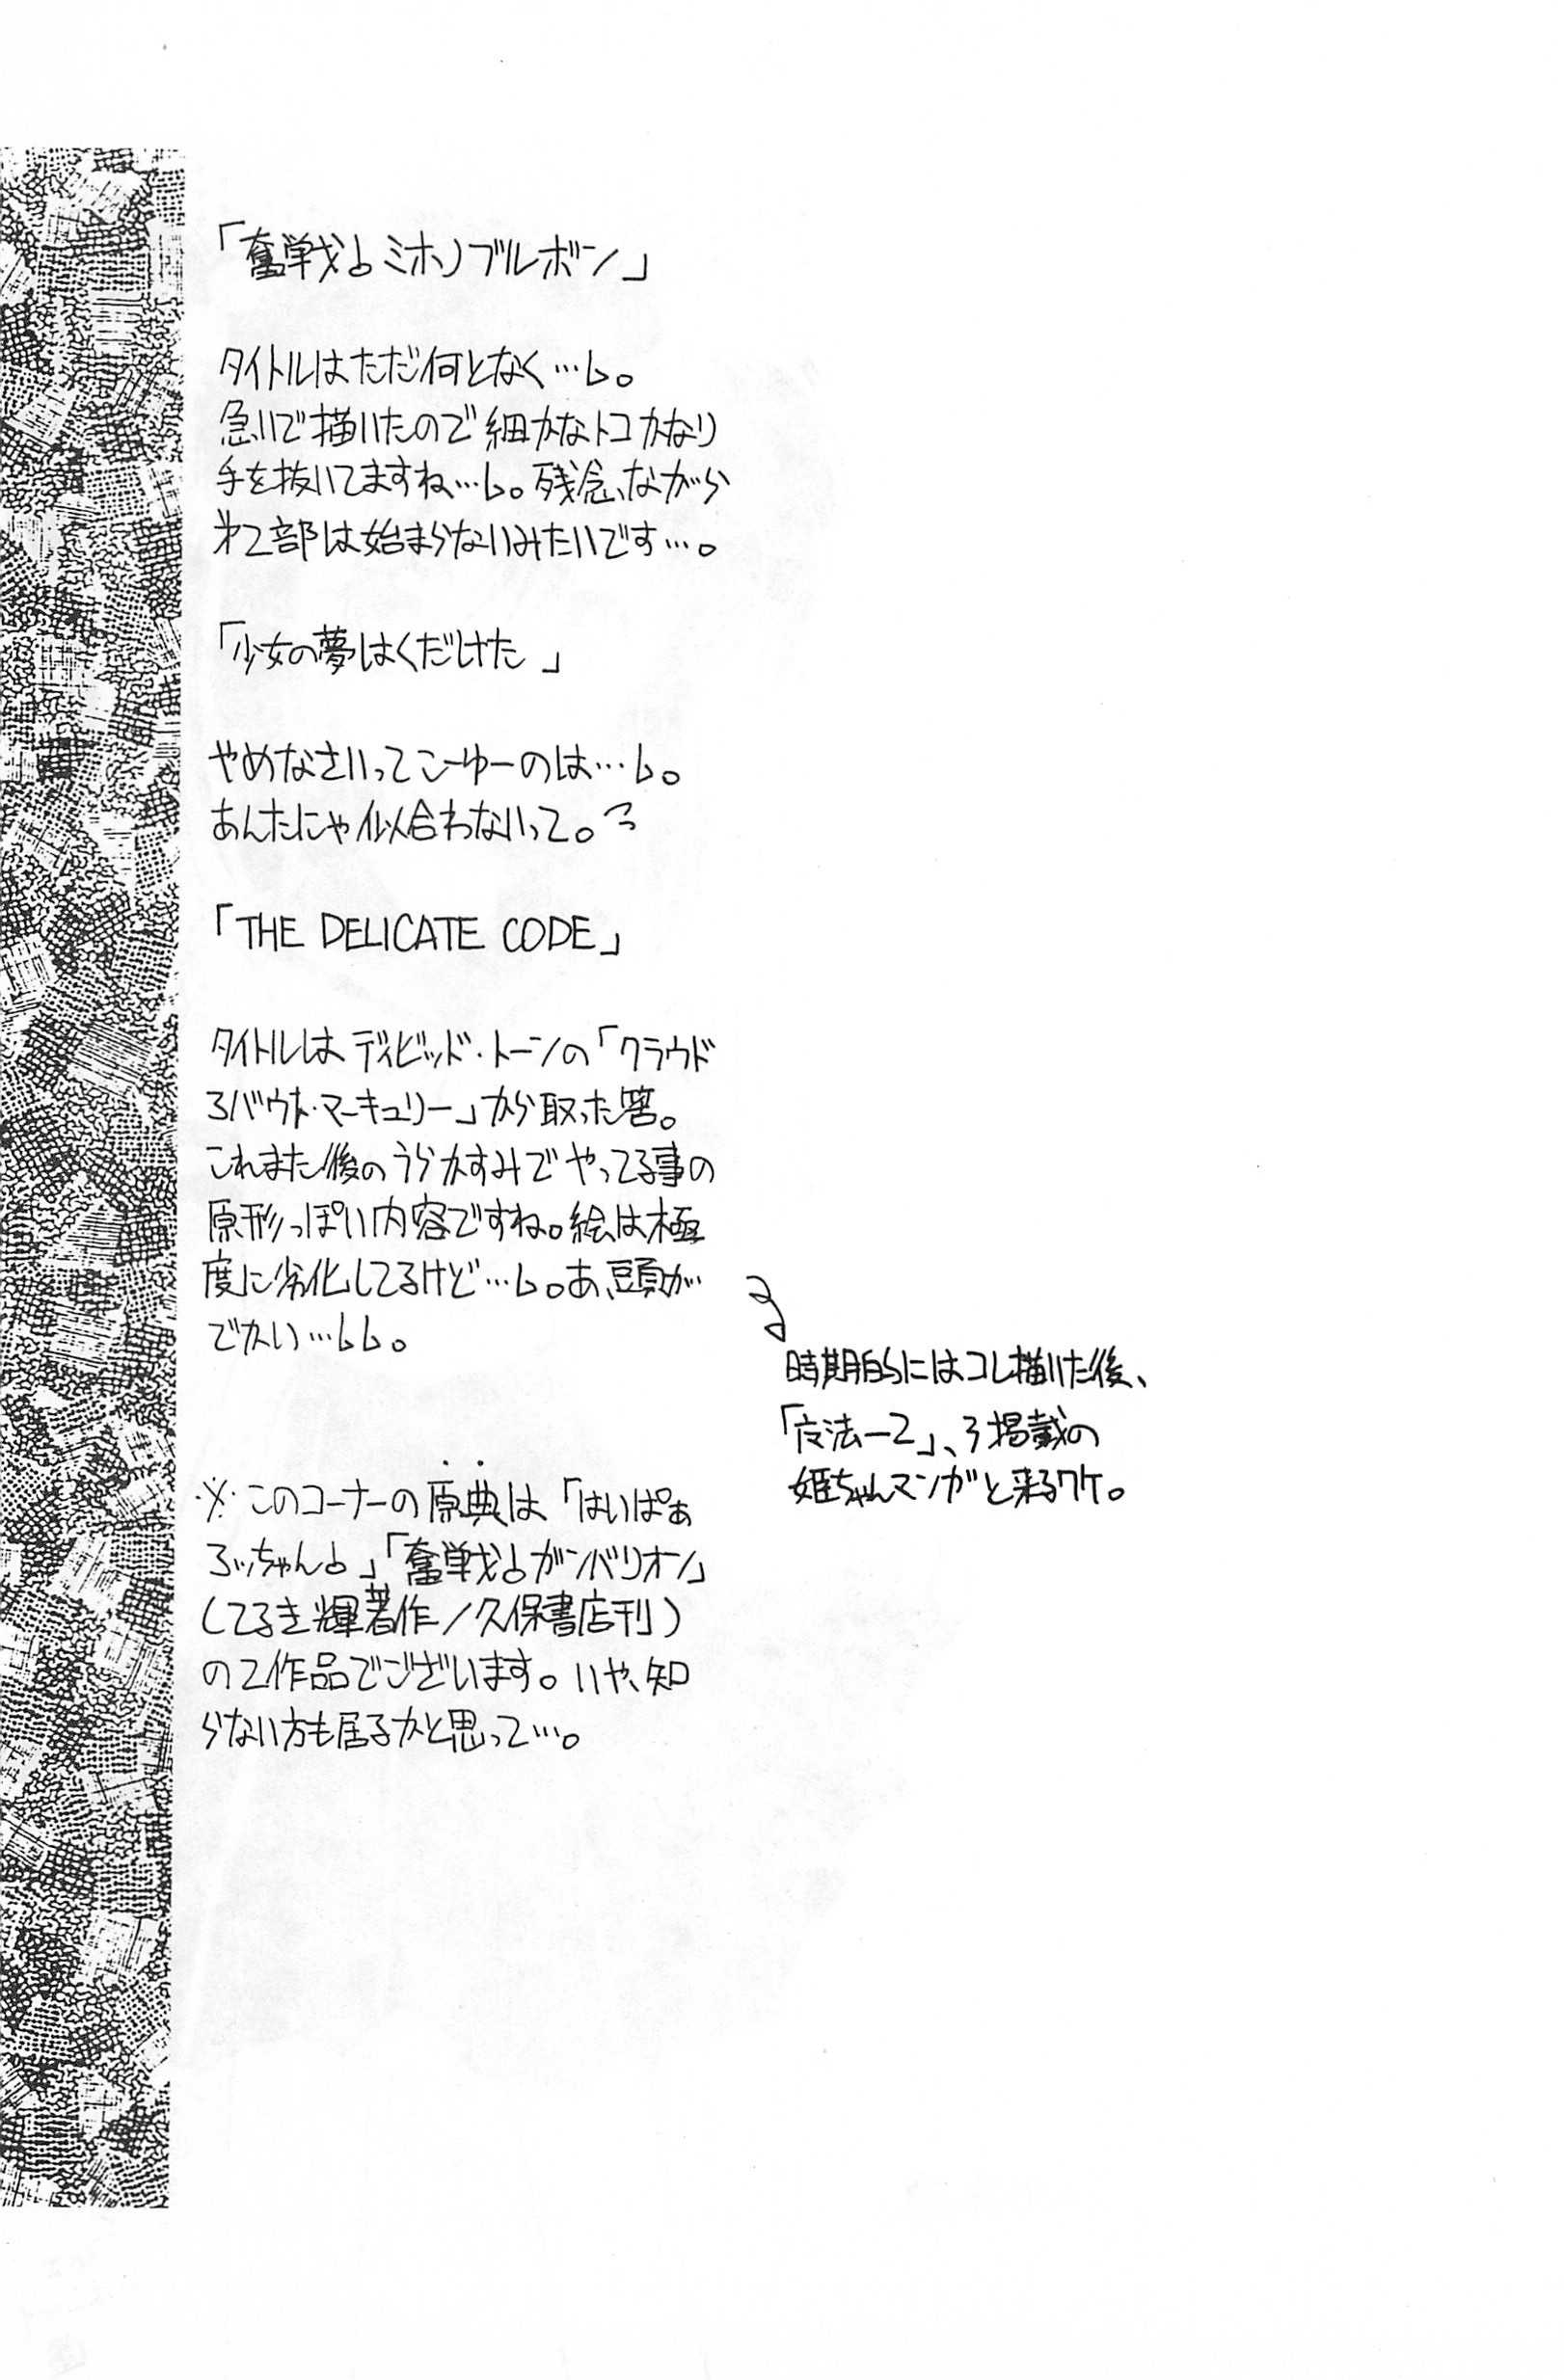 「奮戦♪ミホノブルボン」
タイトルはただ何となく…💧。
急いで描いたので細かなトコかなり
手を抜いてますね…💧。残念ながら
第2部は始まらないみたいです…。
「少女の夢はくだけた」
やめなさいってこーゆーのは…💧。
あんたにゃ似合わないって。
「THE DELICATE CODE」
タイトルはデイビッド・トーンの「クラウド
アバウト・マーキュリー」から取った筈。
これまた後のうらかすみでやってる事の
原形っぽい内容ですね。絵は極
度に劣化してるけど…💧。あ、頭が
でかい…💧💧。
時期的にはコレ描いた後、
「2」、3掲載の
姫ちゃんマンガと来るワケ。
※このコーナーの原典は「はいぱぁ
ろっちゃん♪」「奮戦♪ガンバリオン」
(てるき輝著作/久保書店刊)
の2作品でございます。いや、知
らない方も居るかと思って…。